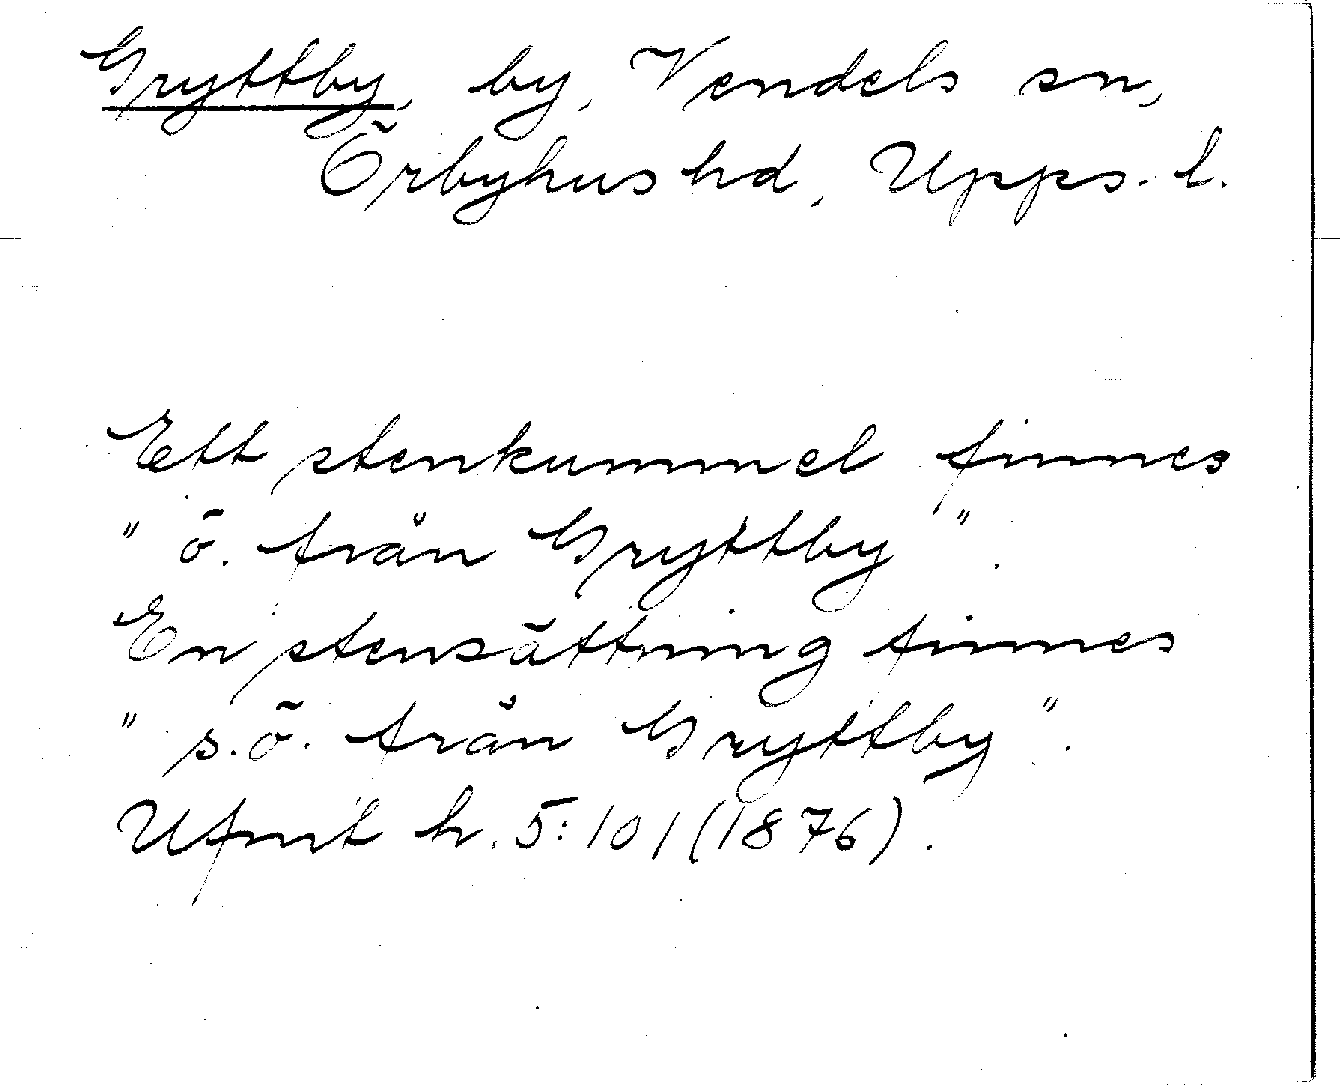 Gryttby, by, Vendels sn,
Örbyhus hd, Upps. l.
Ett stenkummel finnes
" ö. från Gryttby ".
En stensättning finnes
" s.ö. från Gryttby ".
Ufmt h. 5: 101 (1876).